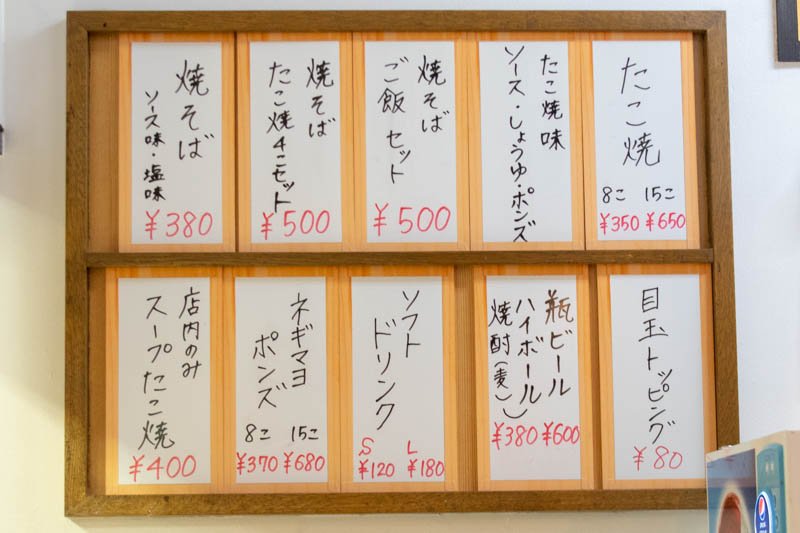 たこ焼
8こ 15こ
¥350 ¥650
たこ焼味
ソース・しょうゆ・ポンズ
焼そば
ご飯セット
¥500
焼そば
たこ焼4こセット
¥500
焼そば
ソース味・塩味
¥380
目玉トッピング
¥80
瓶ビール
ハイボール
焼酎(麦)
¥380 ¥600
ソフト
ドリンク
S L
¥120 ¥180
ネギマヨ
ポンズ
8こ 15こ
¥370 ¥680
店内のみ
スープたこ焼
¥400